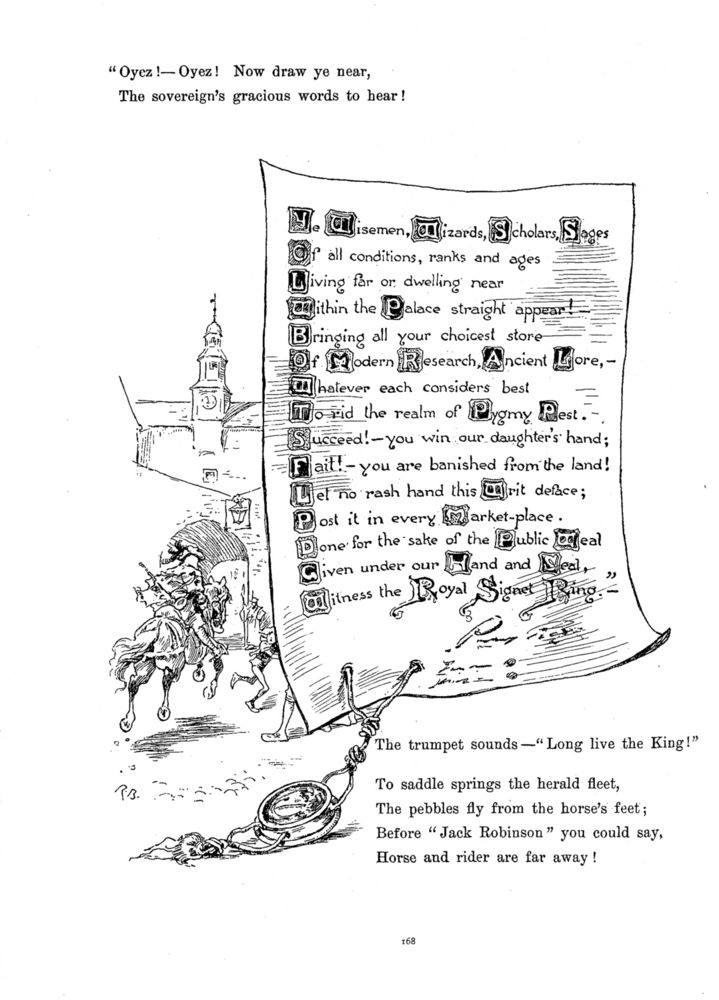 “Oyez!—Oyez! Now draw ye near,
The sovereign’s gracious words to hear!
Ye Wisemen, Wizards, Scholars, Sages
Of all conditions, ranks and ages
Living far or dwelling near
Within the Palace straight appear!—
Bringing all your choicest store
Of Modern Research, Ancient Lore,—
Whatever each considers best
To rid the realm of Pygmy Pest.—
Succeed!—you win our daughter's hand;
Fail!—you are banished from the land!
Let no rash hand this Writ deface;
Post it in every Market-place.
Done for the sake of the Public Weal
Given under our Hand and Seal,
Witness the Royal Signet Ring.—”
The trumpet sounds—“Long live the King!”
To saddle springs the herald fleet,
The pebbles fly from the horse’s feet;
Before “Jack Robinson” you could say,
Horse and rider are far away!
R.B.
168